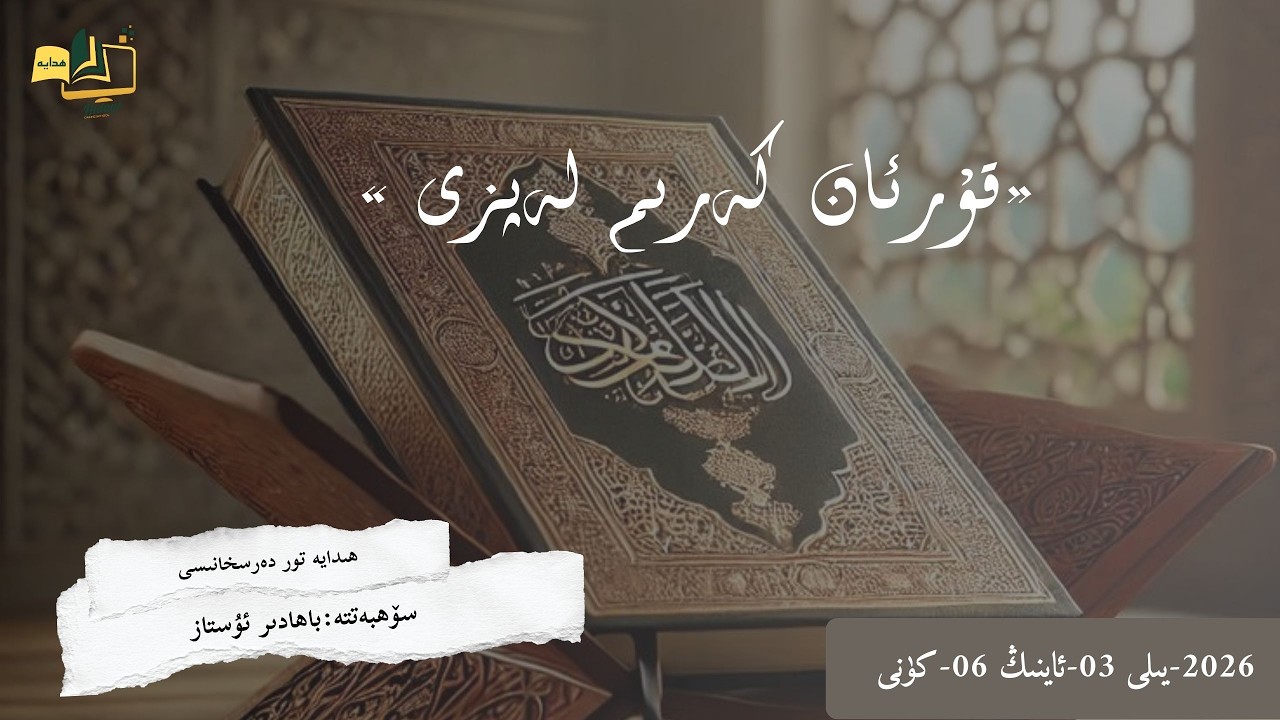 هدايە
»قۇرئان كەرىم لەپزى «
ھىدايە تور دەرسخانىسى
سۆھبەتتە:باھادىر ئۇستاز
2026-يىلى 03-ئاينىڭ 06-كۈنى